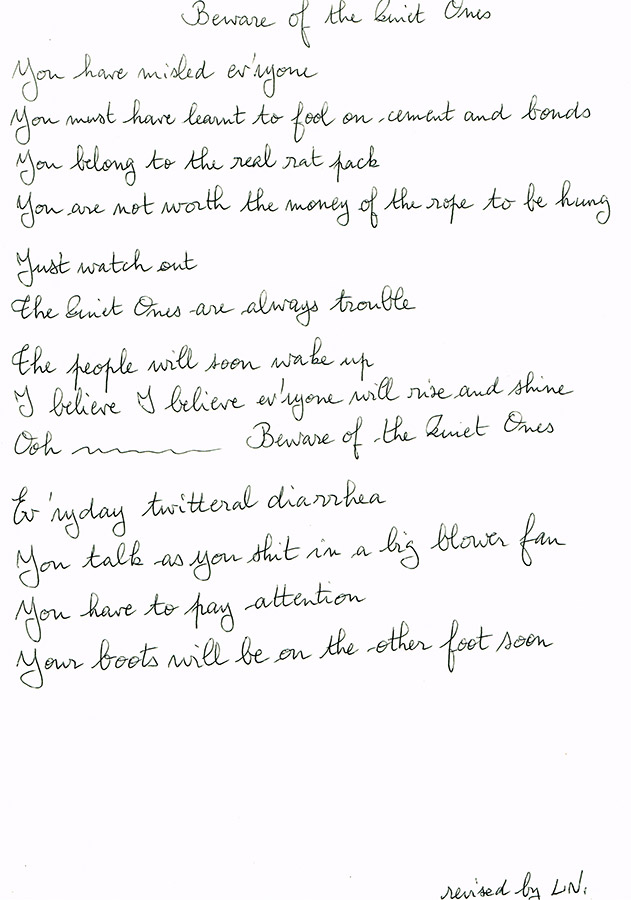 Beware of the Quiet Ones
You have misled ev'ryone
You must have learnt to fool on cement and bonds
You belong to the real rat pack
You are not worth the money of the rope to be hung
Just watch out
The Quiet Ones are always trouble
The people will soon wake up
I believe I believe ev'ryone will rise and shine
Ooh Beware of the Quiet Ones
Ev'ryday twitteral diarrhea
You talk as you shit in a big blower fan
You have to pay attention
Your boots will be on the other foot soon
revised by LN.